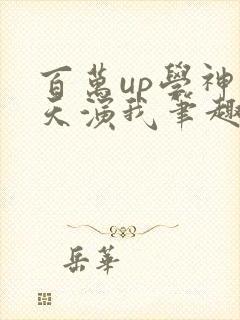 百萬up學神
天演我筆趣
岳華